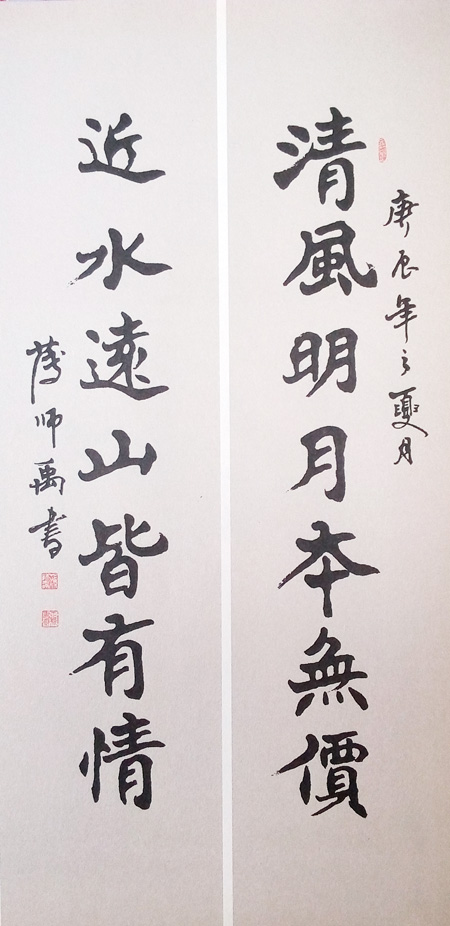 庚辰年之夏月
清風明月本無價
近水遠山皆有情
師禹書